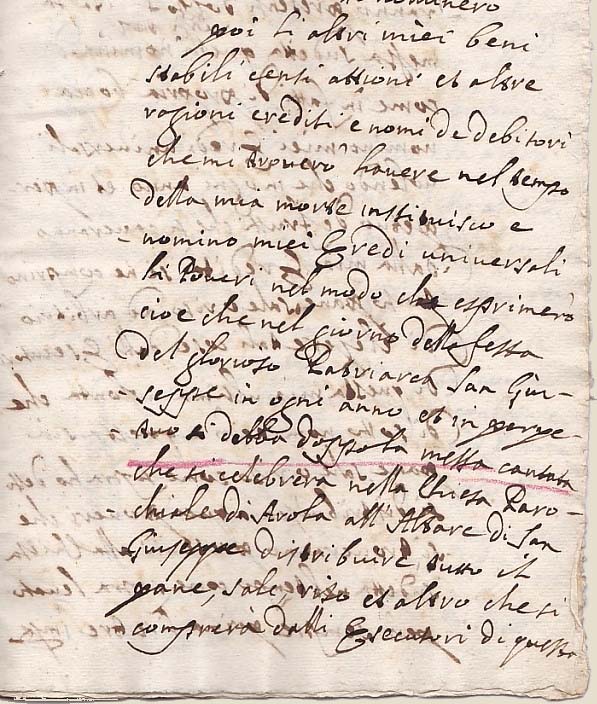 nominero
poi li altri miei beni
stabili censi attioni et altre
ragioni crediti e nomi de debitori
che mi trovero havere nel tempo
della mia morte instituisco e
nomino miei Eredi universali
li Poveri nel modo che esprimerò
cioe che nel giorno della festa
del glorioso Patriarca San Giu-
seppe in ogni anno et in perpe-
tuo si debba doppo la messa cantata
che si celebrera nella Chiesa Paro-
chiale di Arola all'Altare di San
Giuseppe distribuire tutto il
pane, sale, riso et altro che si
comprerà dalli Esecutori di questo